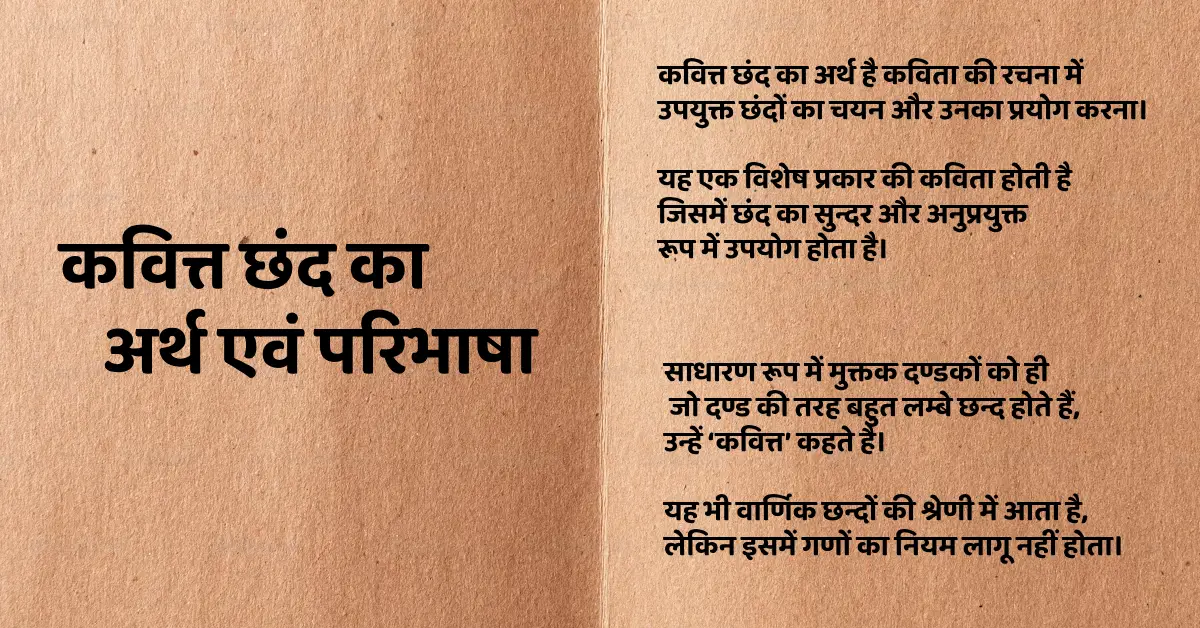 कवित्त छंद का
अर्थ एवं परिभाषा
कवित्त छंद का अर्थ है कविता की रचना में
उपयुक्त छंदों का चयन और उनका प्रयोग करना।
यह एक विशेष प्रकार की कविता होती है
जिसमें छंद का सुन्दर और अनुप्रयुक्त
रूप में उपयोग होता है।
साधारण रूप में मुक्तक दण्डकों को ही
जो दण्ड की तरह बहुत लम्बे छन्द होते हैं,
उन्हें ‘कवित्त’ कहते है।
यह भी वार्णिक छन्दों की श्रेणी में आता है,
लेकिन इसमें गणों का नियम लागू नहीं होता।